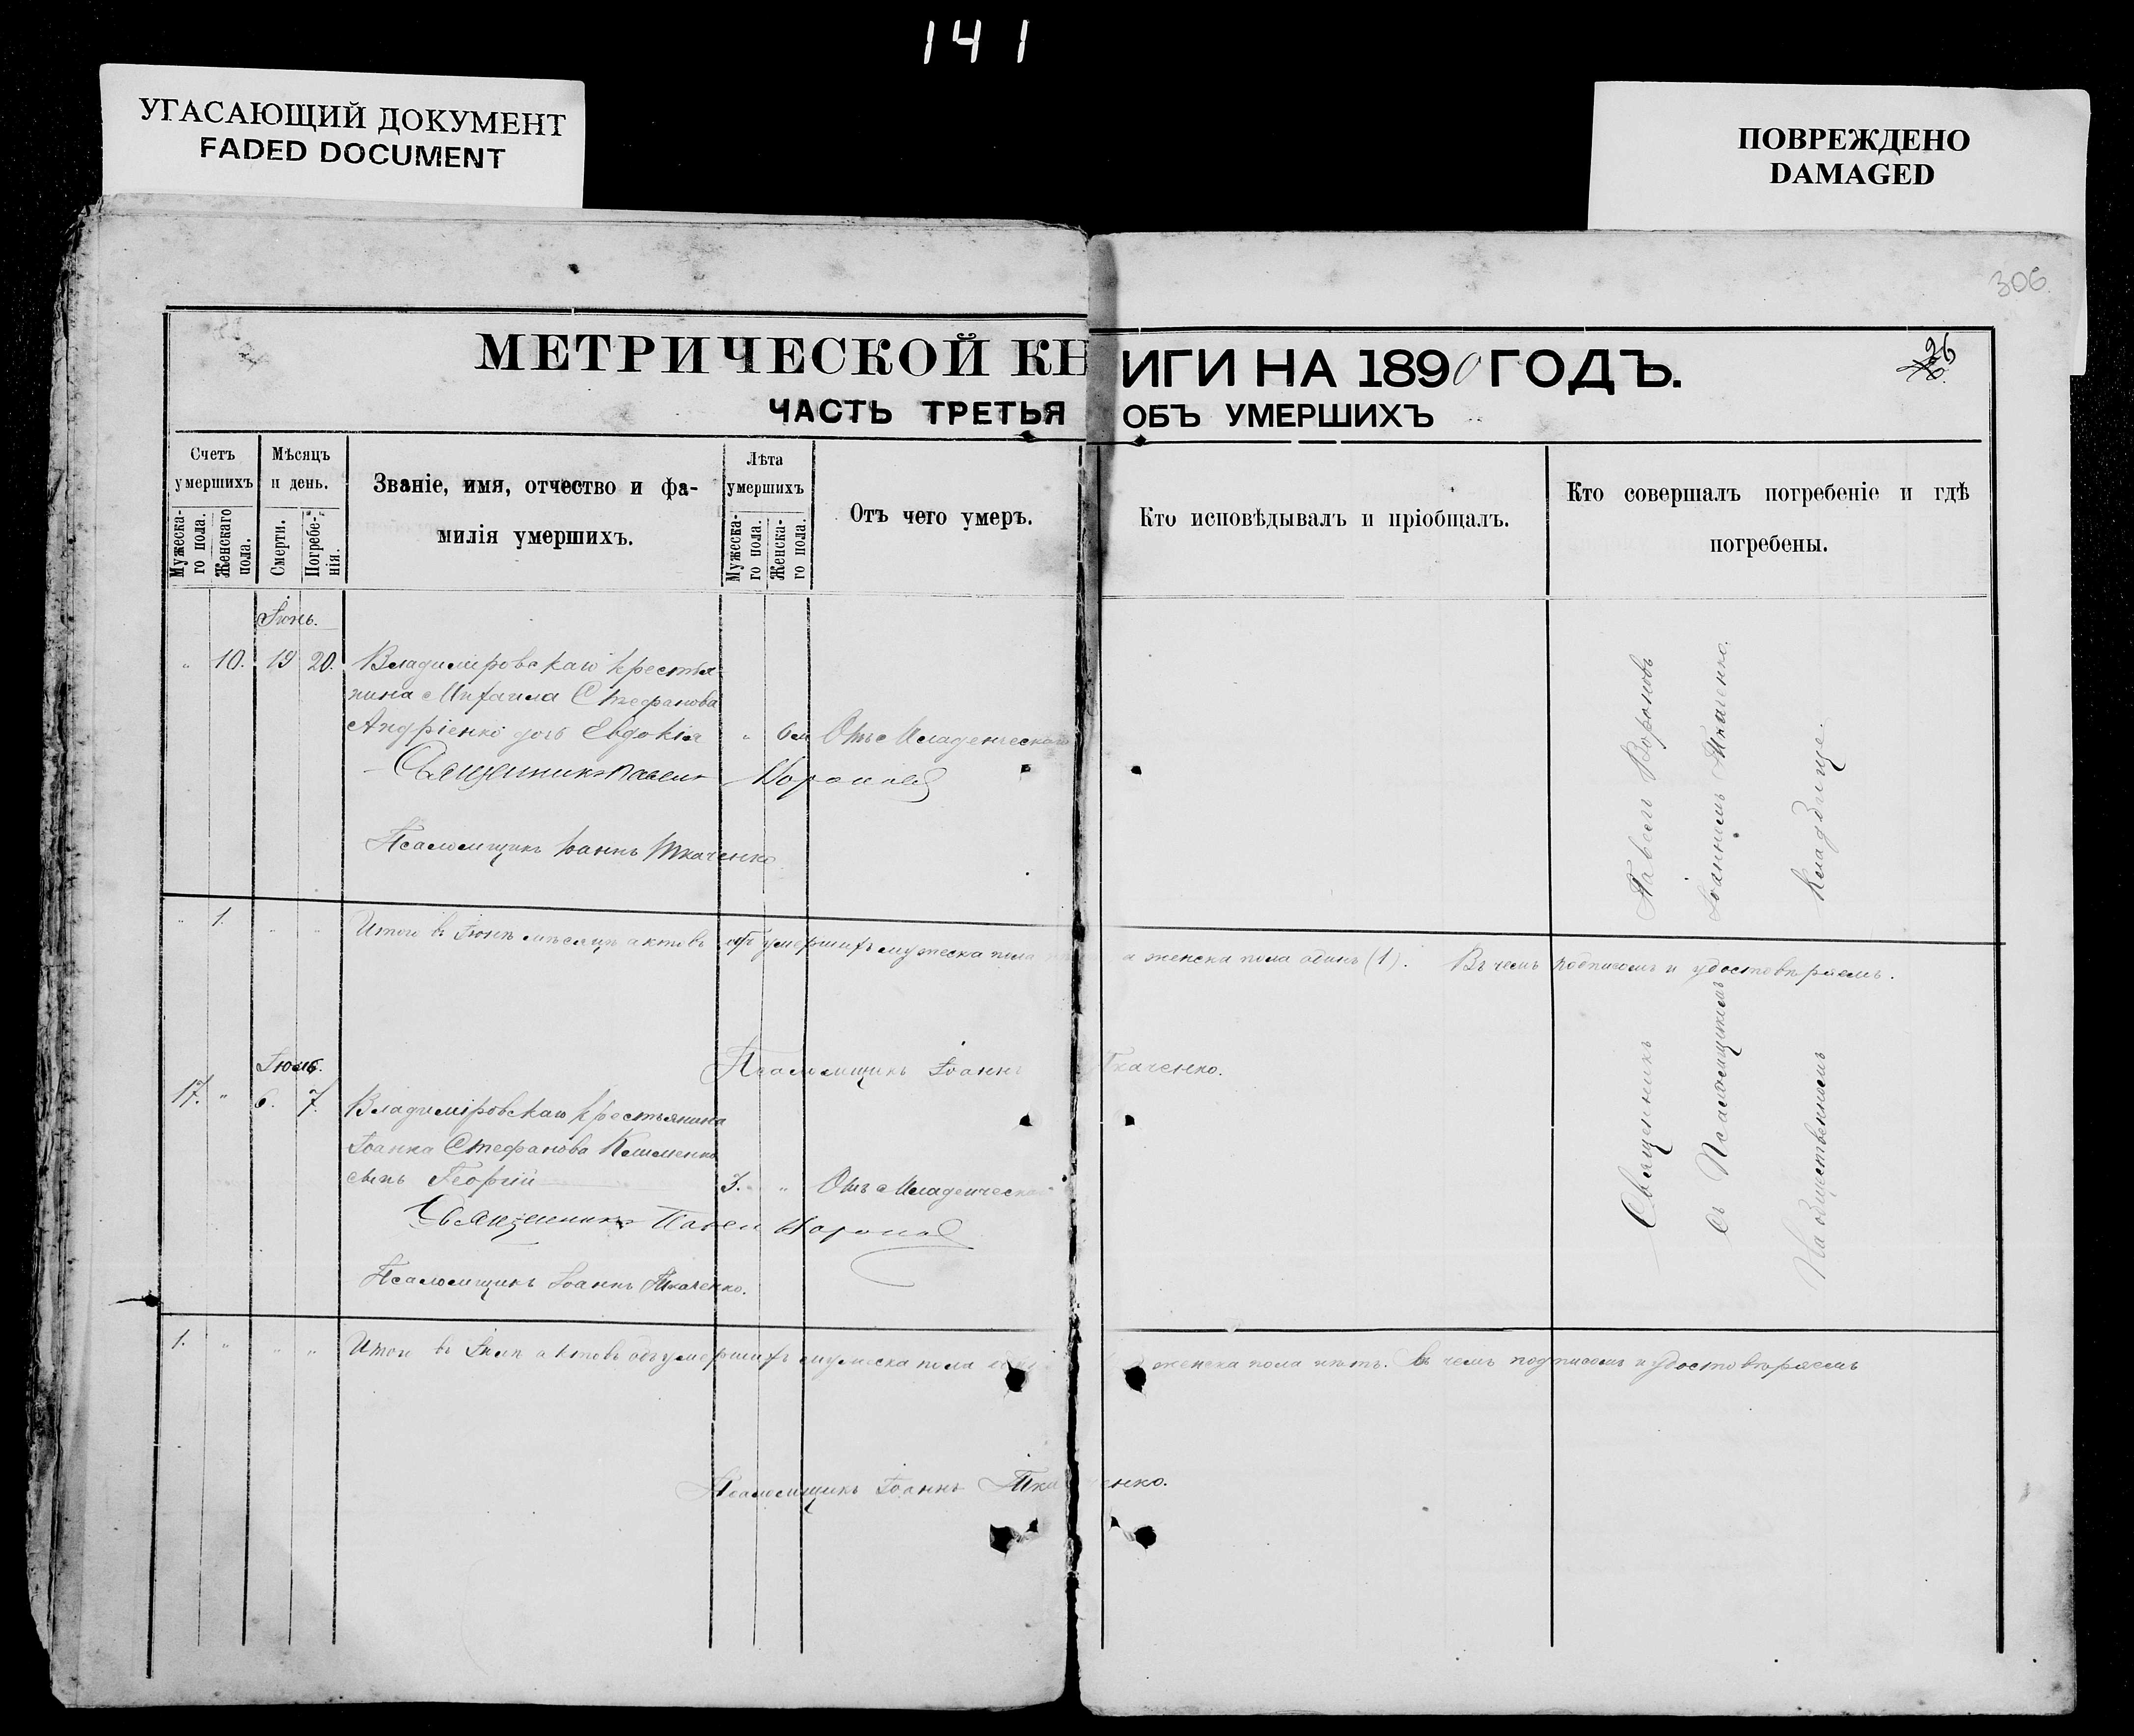 141
УГАСАЮЩИЙ ДОКУМЕНТ
FADED DOCUMENT
ПОВРЕЖДЕНО
DAMAGED
306
26
МЕТРИЧЕСКОЙ КНИГИ НА 1890 ГОДЪ.
ЧАСТЬ ТРЕТЬЯ ОБЪ УМЕРШИХЪ
Счетъ умершихъ
Мужеска-го пола.
Женскаго пола.
Мѣсяцъ и день.
Смерти.
Погребе-нія.
Званіе, имя, отчество и фа-
милія умершихъ.
Лѣта умершихъ
Мужеска-го пола.
Женска-го пола.
Отъ чего умеръ.
Кто исповѣдывалъ и пріобщалъ.
Кто совершалъ погребеніе и гдѣ
погребены.
Іюнь.
" 10. 19 20. Владиміровскаго крестья-
нина Михаила Стефанова
Андріенко дочь Евдокія " 6м Отъ Младенческой
Священникъ Павелъ Вороновъ
Псаломщикъ Іоаннъ Ткаченко
" 1. " " Итого въ Іюнѣ мѣсяцѣ актовъ объ умершихъ мужеска пола а женска пола одинъ (1). Въ чемъ подписомъ и удостовѣряемъ.
Псаломщикъ Іоаннъ Ткаченко.
Іюль.
17. " 6. 7. Владиміровскаго крестьянина
Іоанна Стефанова
сынъ Георгій 3. " Отъ Младенческой
Священникъ Павелъ Вороновъ
Псаломщикъ Іоаннъ Ткаченко.
1. " " " Итого въ Іюлѣ актовъ объ умершихъ мужеска пола женска пола нѣтъ. Въ чемъ подписомъ и удостовѣряемъ
Псаломщикъ Іоаннъ Ткаченко.
Священникъ Павелъ Вороновъ
съ Псаломщикомъ Іоанномъ Ткаченко.
На общественномъ кладбище.